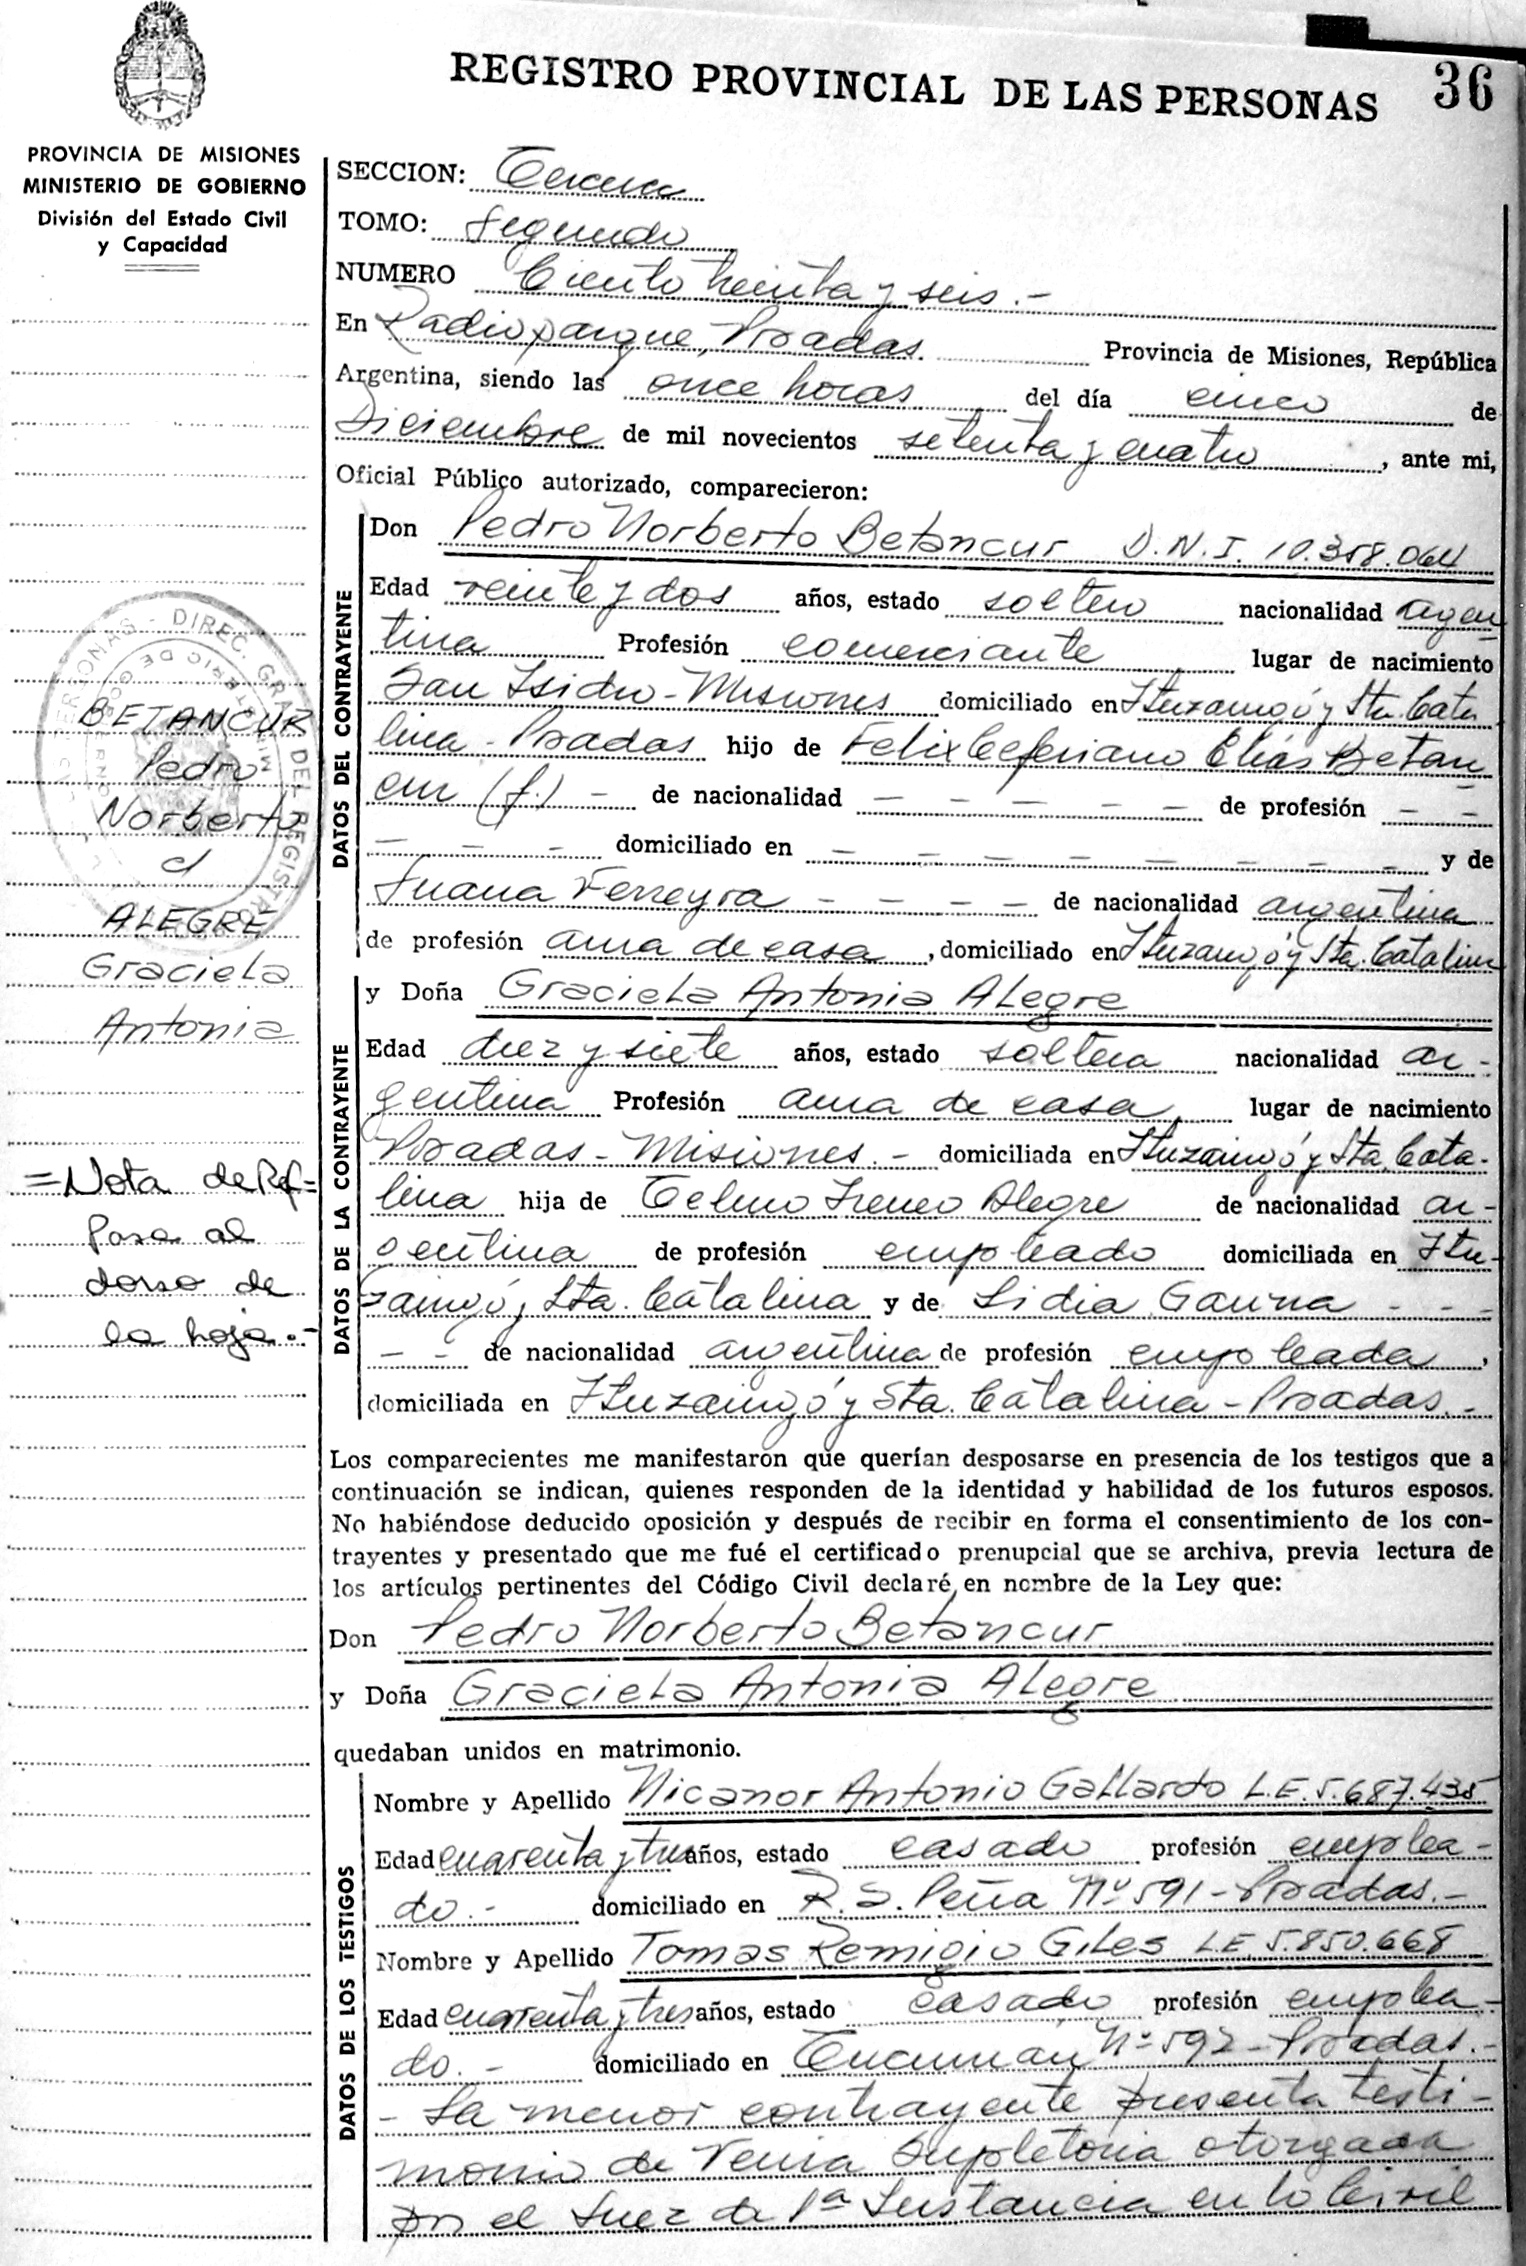 REGISTRO PROVINCIAL DE LAS PERSONAS 36
PROVINCIA DE MISIONES
MINISTERIO DE GOBIERNO
División del Estado Civil
y Capacidad
SECCION: Tercera
TOMO: Segundo
NUMERO Ciento treinta y seis.-
En Radioparque, Posadas. Provincia de Misiones, República
Argentina, siendo las once horas del día cinco de
Diciembre de mil novecientos setenta y cuatro, ante mi,
Oficial Público autorizado, comparecieron:
DATOS DEL CONTRAYENTE
Don Pedro Norberto Betancur D.N.I. 10.358.064
Edad veinte y dos años, estado soltero nacionalidad argen
tina Profesión comerciante lugar de nacimiento
San Isidro - Misiones domiciliado en Ituzaingó y Sta. Cata
lina - Posadas hijo de Felix Ceferiano Elias Betan
cur (f.) - de nacionalidad - - - - - - de profesión - -
- - - domiciliado en - - - - - - - - y de
Juana Ferreyra - - - - de nacionalidad argentina
de profesión ama de casa, domiciliado en Ituzaingó y Sta. Catalina
DATOS DE LA CONTRAYENTE
y Doña Graciela Antonia Alegre
Edad diez y siete años, estado soltera nacionalidad ar-
gentina Profesión ama de casa, lugar de nacimiento
Posadas - Misiones.- domiciliada en Ituzaingó y Sta. Cata-
lina hija de Telmo Ireneo Alegre de nacionalidad ar-
gentina de profesión empleado domiciliada en Itu-
zaingó y Sta. Catalina y de Lidia Gauna - - -
- - de nacionalidad argentina de profesión empleada,
domiciliada en Ituzaingó y Sta. Catalina - Posadas.-
Los comparecientes me manifestaron que querían desposarse en presencia de los testigos que a
continuación se indican, quienes responden de la identidad y habilidad de los futuros esposos.
No habiéndose deducido oposición y después de recibir en forma el consentimiento de los con-
trayentes y presentado que me fué el certificado prenupcial que se archiva, previa lectura de
los artículos pertinentes del Código Civil declaré, en nombre de la Ley que:
Don Pedro Norberto Betancur
y Doña Graciela Antonia Alegre
quedaban unidos en matrimonio.
DATOS DE LOS TESTIGOS
Nombre y Apellido Nicanor Antonio Gallardo L.E. 5.687.435
Edad cuarenta y tres años, estado casado profesión emplea-
do.- domiciliado en R. S. Peña Nº 591 - Posadas.-
Nombre y Apellido Tomas Remigio Giles L.E. 5.850.668
Edad cuarenta y tres años, estado casado profesión emplea-
do.- domiciliado en Tucumán Nº 592 - Posadas.-
- La menor contrayente presenta testi-
monio de Venia Supletoria otorgada
por el Juez de 1ª Instancia en lo Civil
BETANCUR
Pedro
Norberto
c/
ALEGRE
Graciela
Antonia
= Nota de Ref=
Pasa al
dorso de
la hoja.-